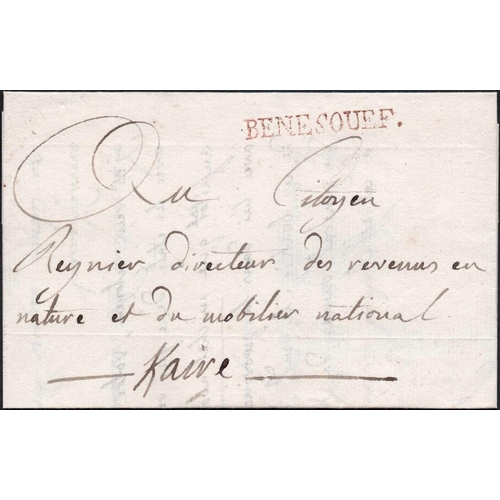 BENESOUEF.
Au Citoyen
Reynier directeur des revenus en
nature et du mobilier national
Kaire